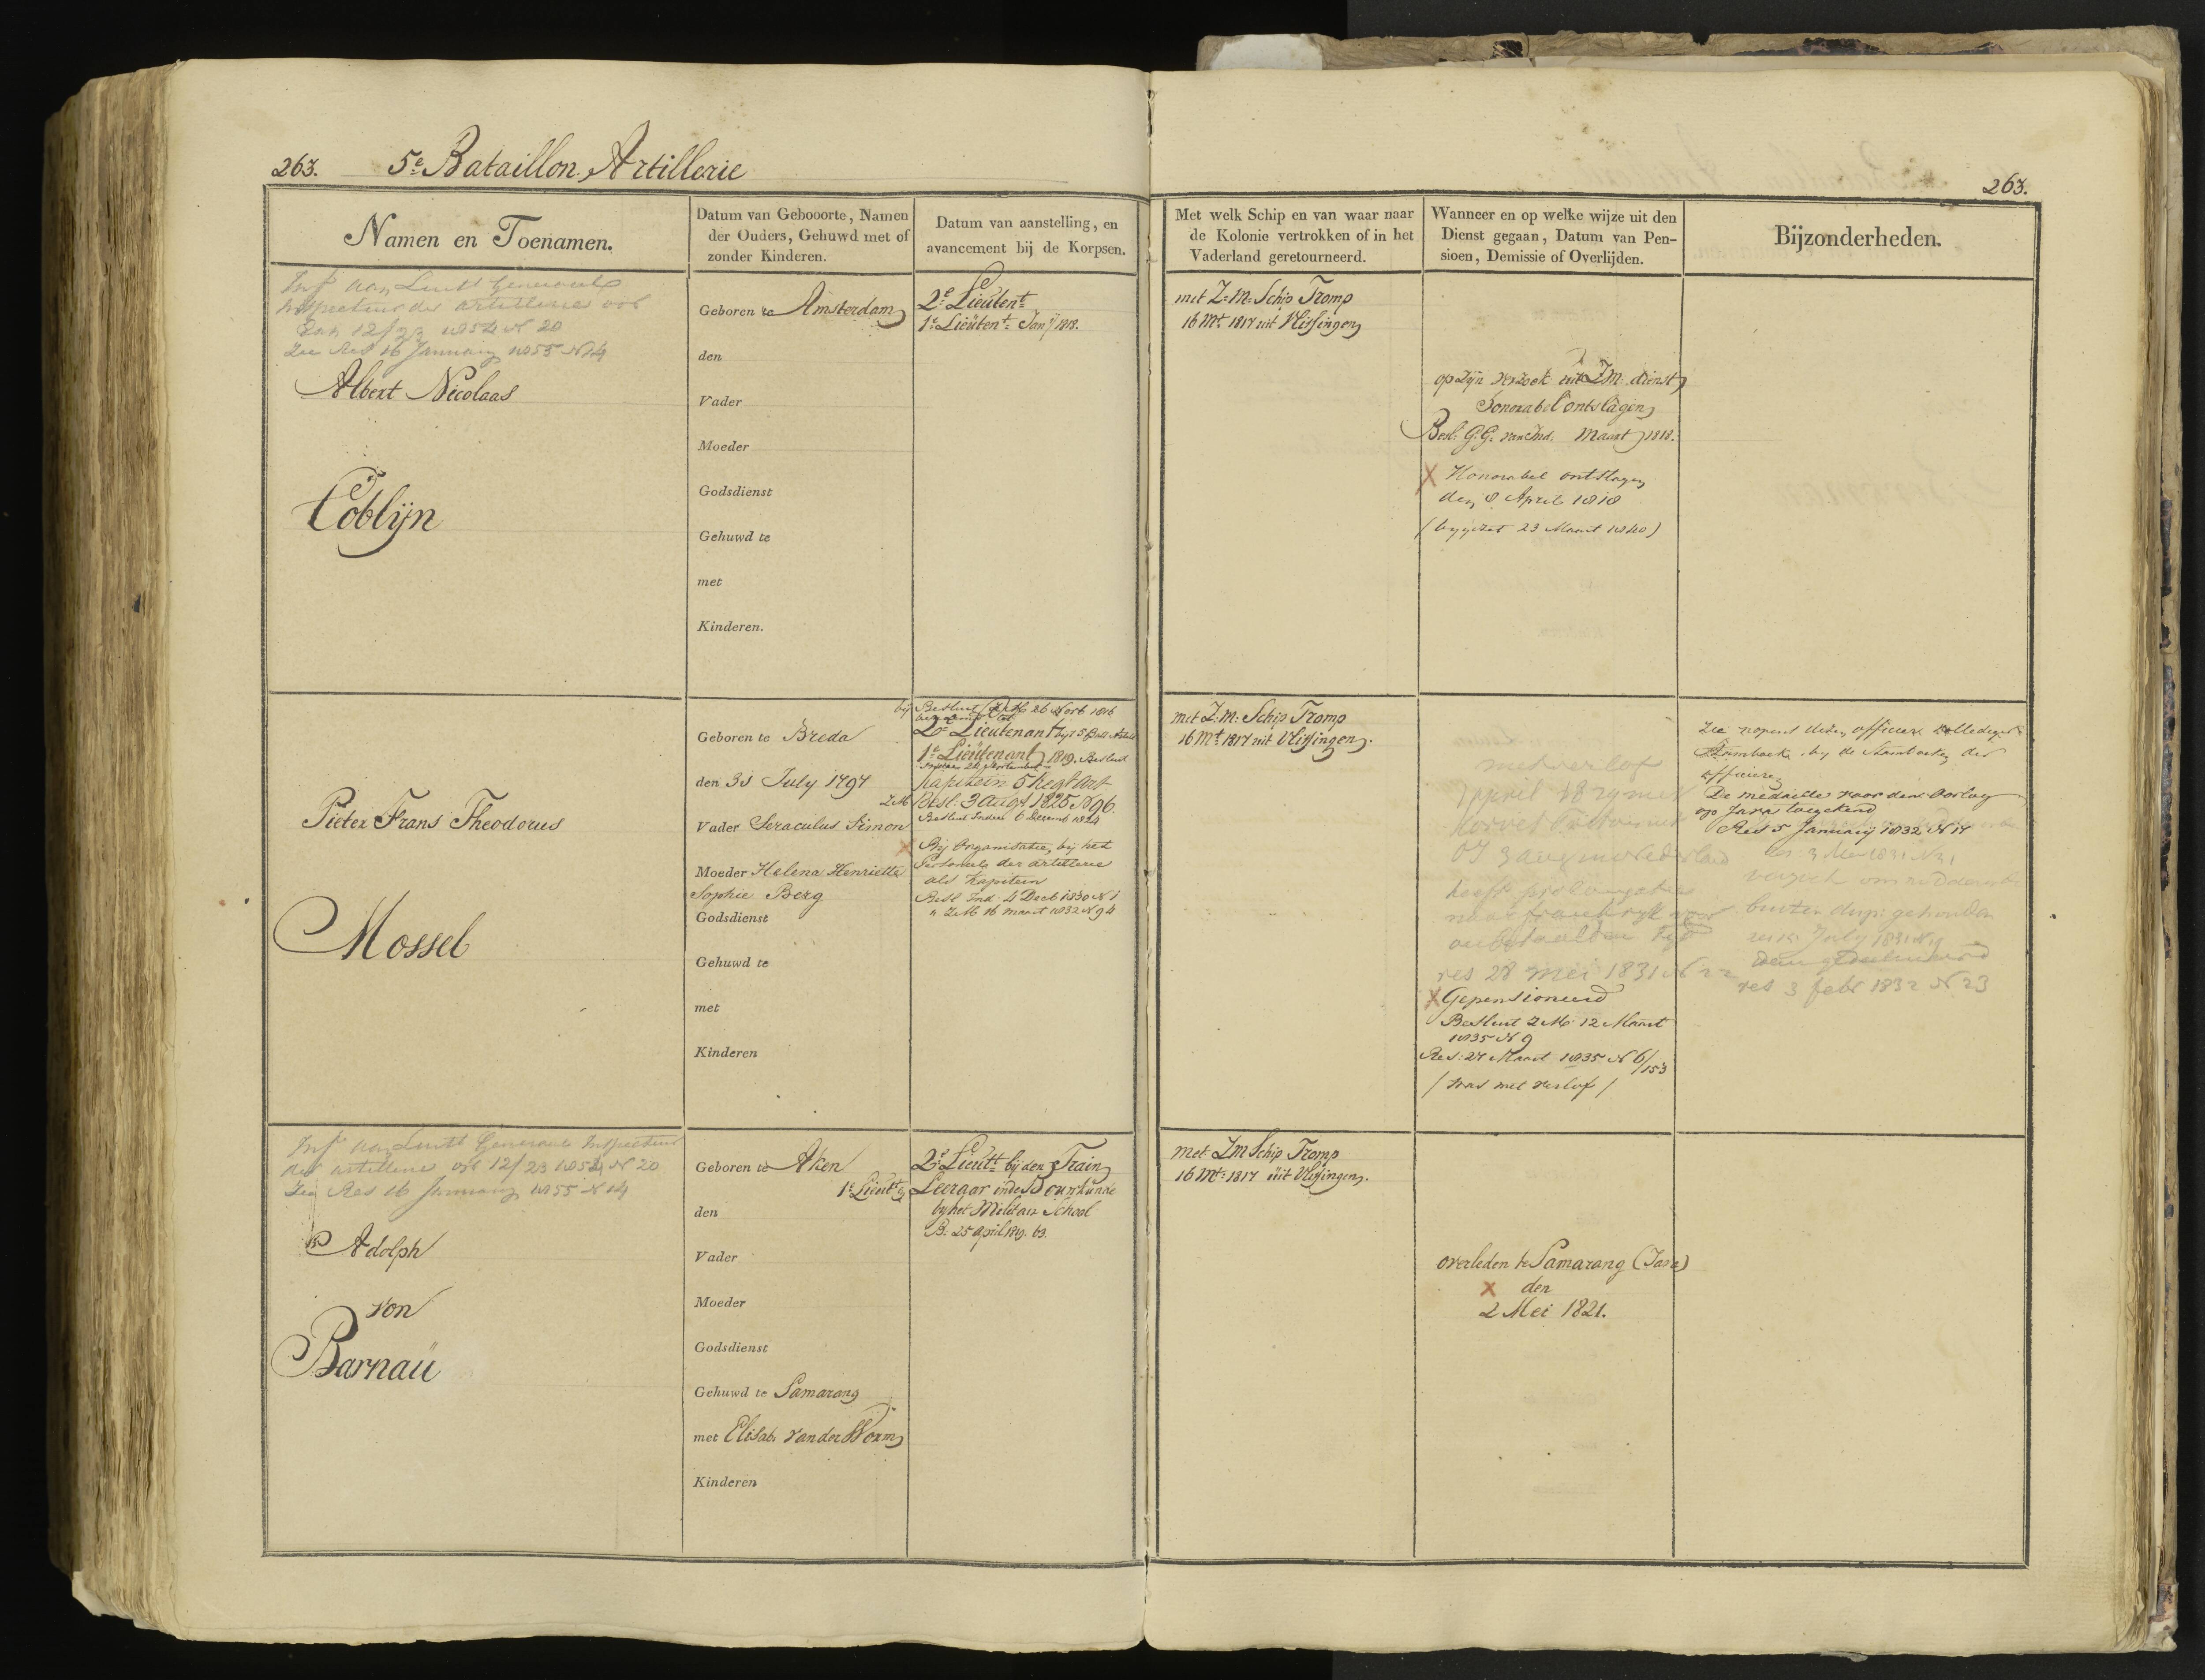 263. 5e Bataillon Artillerie
263.
Namen en Toenamen.
Datum van Gebooorte, Namen
der Ouders, Gehuwd met of
zonder Kinderen.
Datum van aanstelling, en
avancement bij de Korpsen.
Met welk Schip en van waar naar
de Kolonie vertrokken of in het
Vaderland geretourneerd.
Wanneer en op welke wijze uit den
Dienst gegaan, Datum van Pen-
sioen, Demissie of Overlijden.
Bijzonderheden.
Inft aan Luitt Generaal
Inspecteur der artillerie
12/23 1854 N 20
Zie Res 16 January 1855 N 14
Albert Nicolaas
Coblijn
Geboren te Amsterdam
den
Vader
Moeder
Godsdienst
Gehuwd te
met
Kinderen.
2e Lieutent
1e Lieutent Jany 1818.
met Z:M: Schip Tromp
16 Mt 1817 uit Vlissingen
op zijn verzoek uit ZM dienst
honorabel ontslagen
Besl: G:G: van Ind: Maart 1818.
X Honorabel ontslagen
den 8 April 1818
(bygezet 23 Maart 1840)
Pieter Frans Theodorus
Mossel
Geboren te Breda
den 31 July 1797
Vader Seraculus Simon
Moeder Helena Henriette
Sophie Berg
Godsdienst
Gehuwd te
met
Kinderen
bij Besluit ZM 26 Novb 1816
benoemd tot
2e Lieutenant by t 5 Batt Artill
1e Lieutenant 1819. Besluit
Kapitein 5 Regt Art
ZM Besl: 3 Augt 1825 N 96.
Besluit Indien 6 Decemb 1824
X Bij Organisatie, bij het
Personeel der artillerie
als Kapitein
Besl Ind 4 Decb 1830 N 1
" ZM 16 maart 1832 N 94
met Z:M: Schip Tromp
16 Mt 1817 uit Vlissingen.
met verlof
naar frankryk
res 28 mei 1831 N 22
X Gepensioneerd
Besluit ZM 12 Maart
1835 N 9
Res: 27 Maart 1835 N 6/153
/ was met verlof /
Zie nopens dezen officier vollediger
Stamboek by de Stamboeken der
officieren
De medaille voor den Oorlog
op Java toegekend
Res 5 January 1832 N 17
buiten
July 1831
res 3 febr 1832 N 23
Inft aan Luitt Generaal Inspecteur
der artillerie 12/23 1854 N 20
Zie Res 16 January 1855 N 14
Adolph
von
Barnaü
Geboren te Aken
den
Vader
Moeder
Godsdienst
Gehuwd te Samarang
met Elisab. van der Worm
Kinderen
2e Lieutt bij den Train
1e Lieutt & Leeraar in de Bouwkunde
by het Militair School
B: 25 April 1819. 63.
met ZM Schip Tromp
16 Mt 1817 uit Vlissingen.
overleden te Samarang (Java)
X den
2 Mei 1821.